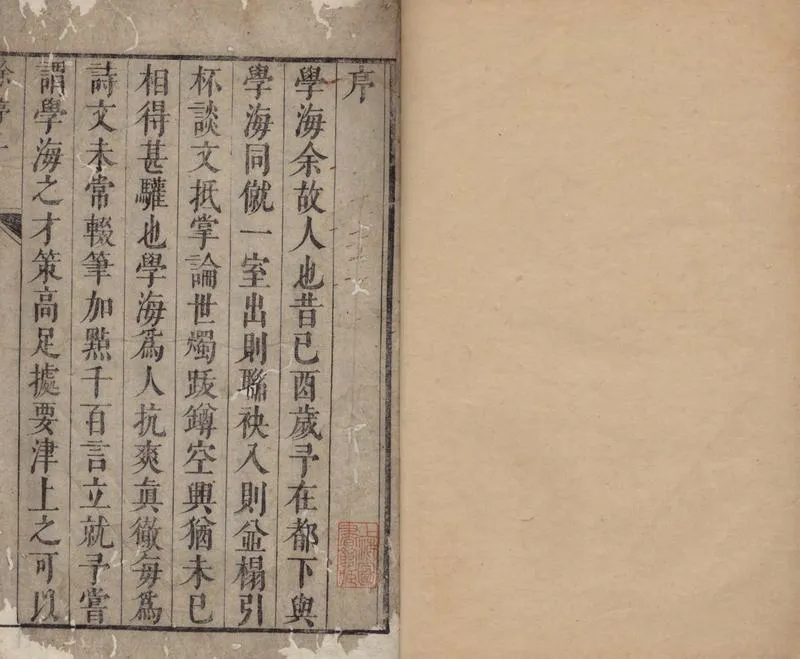 序
學海余故人也昔己酉歲予在都下與
學海同僦一室出則聯袂入則並榻引
杯談文抵掌論世燭跋罇空興猶未已
相得甚驩也學海爲人抗爽眞徹每爲
詩文未常輟筆加點千百言立就予嘗
謂學海之才策高足據要津上之可以